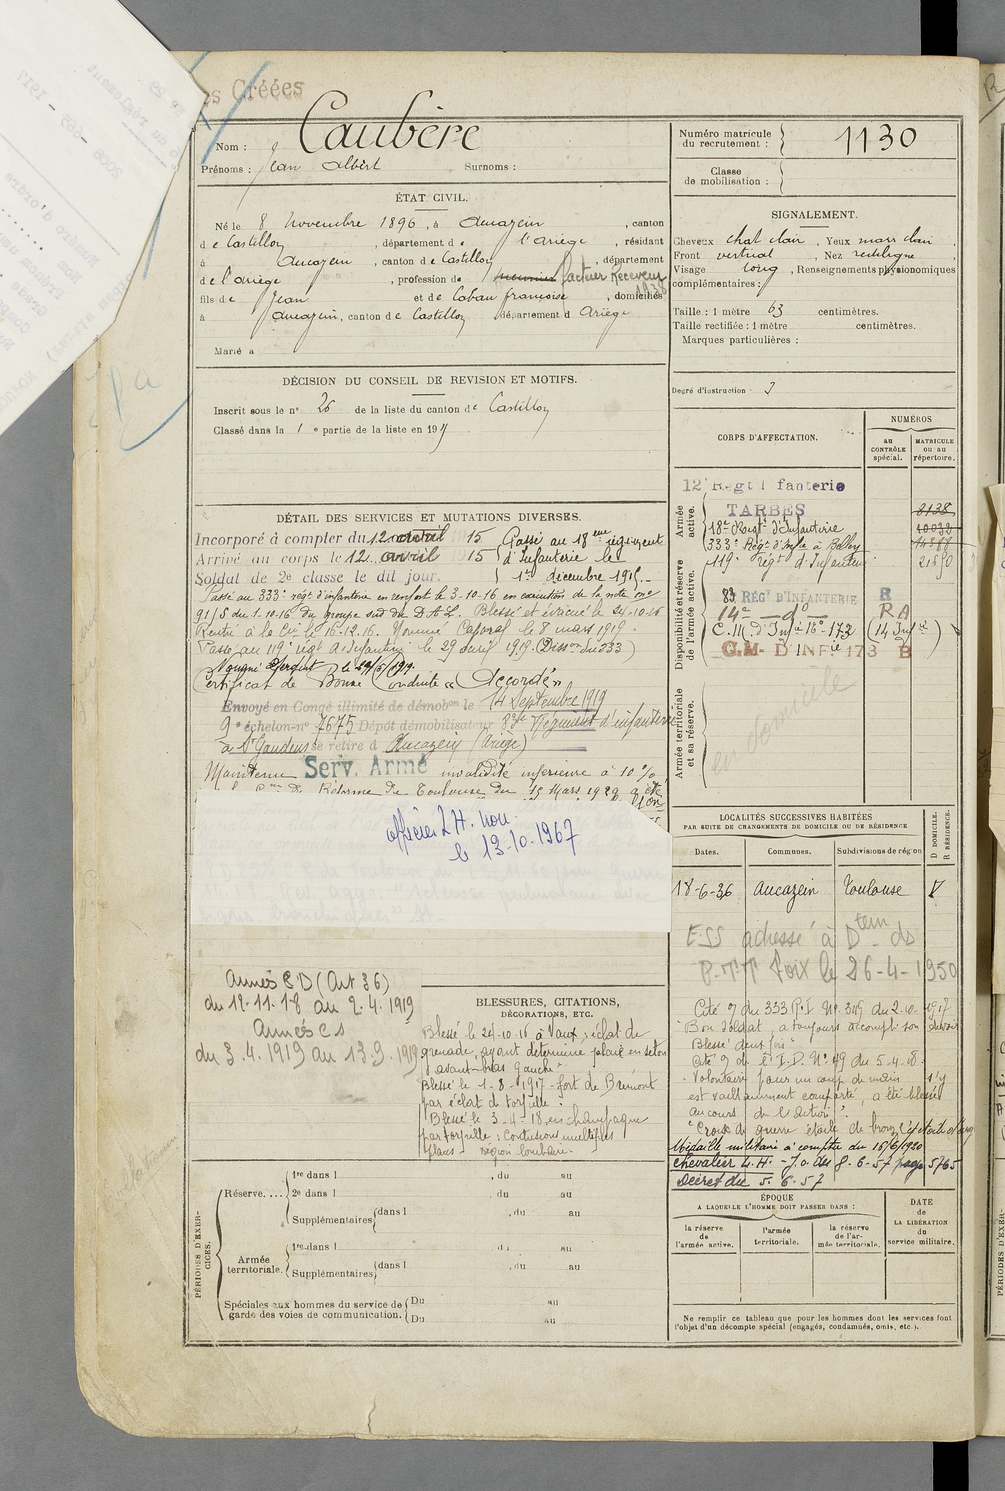 es Créées
Nom : Caubère
Prénoms : Jean Albert Surnoms :
Numéro matricule du recrutement : 1130
Classe de mobilisation :
ÉTAT CIVIL.
Né le 8 Novembre 1896, à Aucazein, canton
de Castillon, département de l'Ariège, résidant
à Aucazein, canton de Castillon, département
de l'ariège, profession de facteur Receveur
1938
fils de Jean et de Caban françoise, domiciliés
à Aucazein, canton de Castillon, département d Ariège
Marié à
SIGNALEMENT.
Cheveux chat clair, Yeux marr clair,
Front vertical, Nez rectiligne,
Visage long, Renseignements physionomiques
complémentaires :
Taille : 1 mètre 63 centimètres.
Taille rectifiée : 1 mètre centimètres.
Marques particulières :
Degré d'instruction : 3
DÉCISION DU CONSEIL DE REVISION ET MOTIFS.
Inscrit sous le n° 26 de la liste du canton de Castillon
Classé dans la 1e partie de la liste en 191
CORPS D'AFFECTATION.
NUMÉROS
au CONTRÔLE spécial.
MATRICULE ou au répertoire.
Armée active.
12e Régt Infanterie
TARBES 8138
18e Régt d'Infanterie 10032
333e Régt d'Infie à Belley
119e régt d'Infanterie
Disponibilité et réserve de l'armée active.
83 RÉGt D'INFANTERIE R
14e — do — RA
C.M. d'Infie 16e-173 (14 Infie)
C.M- D'INFie 173 B
Armée territoriale et sa réserve.
en domicile
DÉTAIL DES SERVICES ET MUTATIONS DIVERSES.
Incorporé à compter du 12 avril 1915 Passé au 18eme régiment
Arrivé au corps le 12 avril 1915 d'Infanterie le
Soldat de 2e classe le dit jour. 1er décembre 1915.-
Passé au 333e régt d'infanterie en renfort le 3-10-16 en exécution de la note no
91/S du 1-10-16 du groupe sud du D.A.L. Blessé et évacué le 24-10-16
Rentré à le 16-12-16. Nommé Caporal le 8 mars 1919
Passé au 119e régt d'Infanterie le 29 avril 1919 (Disson du 333)
Nommé Sergent le 29/6/1919.
Certificat de Bonne Conduite "Accordé"
Envoyé en Congé illimité de démobon le 14 Septembre 1919
9e échelon-n° 7675 Dépôt démobilisateur 83e Régiment d'infanterie
à St Gaudens se retire à Aucazein (Ariège)
Maintenu Serv. Armé invalidité inférieure à 10 %
Con de Réforme de Toulouse du 15 Mars 1929
officier L.H. non.
le 13-10-1967
LOCALITÉS SUCCESSIVES HABITÉES
PAR SUITE DE CHANGEMENTS DE DOMICILE OU DE RÉSIDENCE
Dates. Communes. Subdivisions de région D DOMICILE. R RÉSIDENCE.
18-6-36 Aucazein Toulouse
ESS adressé à Dtem ds
P.T.T Foix le 26-4-1950
Annés C D (Art 36)
du 12.11.18 au 2.4.1919
Annés C S
du 3.4.1919 au 13.9.1919
BLESSURES, CITATIONS,
DÉCORATIONS, ETC.
Blessé le 24-10-16 à Vaux, éclat de
grenade, ayant déterminé plaie en séton
avant-bras gauche
Blessé le 1-8-1917-fort de Brimont
par éclat de torpille.
Blessé le 3-4-18 en champagne
par torpille : Contusions multiples
région lombaire.
Cité O du 333 R.I No 349 du 2-10-1917
"Bon Soldat, a toujours accompli son devoir
Blessé deux fois"
Cité O de l'I.D. No 49 du 5-4-18.
"Volontaire pour un coup de main s'y
est vaillamment comporté, a été blessé
au cours de l'action".
"Croix de guerre étoile de bronze
Médaille militaire à compter du 16/6/1920
Chevalier L.H. - J.O. des 8.6.57 page 5765
Décret du 5.6.57
PÉRIODES D'EXERCICES.
Réserve,... 1re dans l , du au
2e dans l , du au
Supplémentaires dans l , du au
Armée territoriale. 1re dans l , du au
Supplémentaires dans l , du au
Spéciales aux hommes du service de garde des voies de communication. Du au
Du au
ÉPOQUE
A LAQUELLE L'HOMME DOIT PASSER DANS :
la réserve de l'armée active.
l'armée territoriale.
la réserve de l'armée territoriale.
DATE de LA LIBÉRATION du service militaire.
Ne remplir ce tableau que pour les hommes dont les services font
l'objet d'un décompte spécial (engagés, condamnés, omis, etc.).